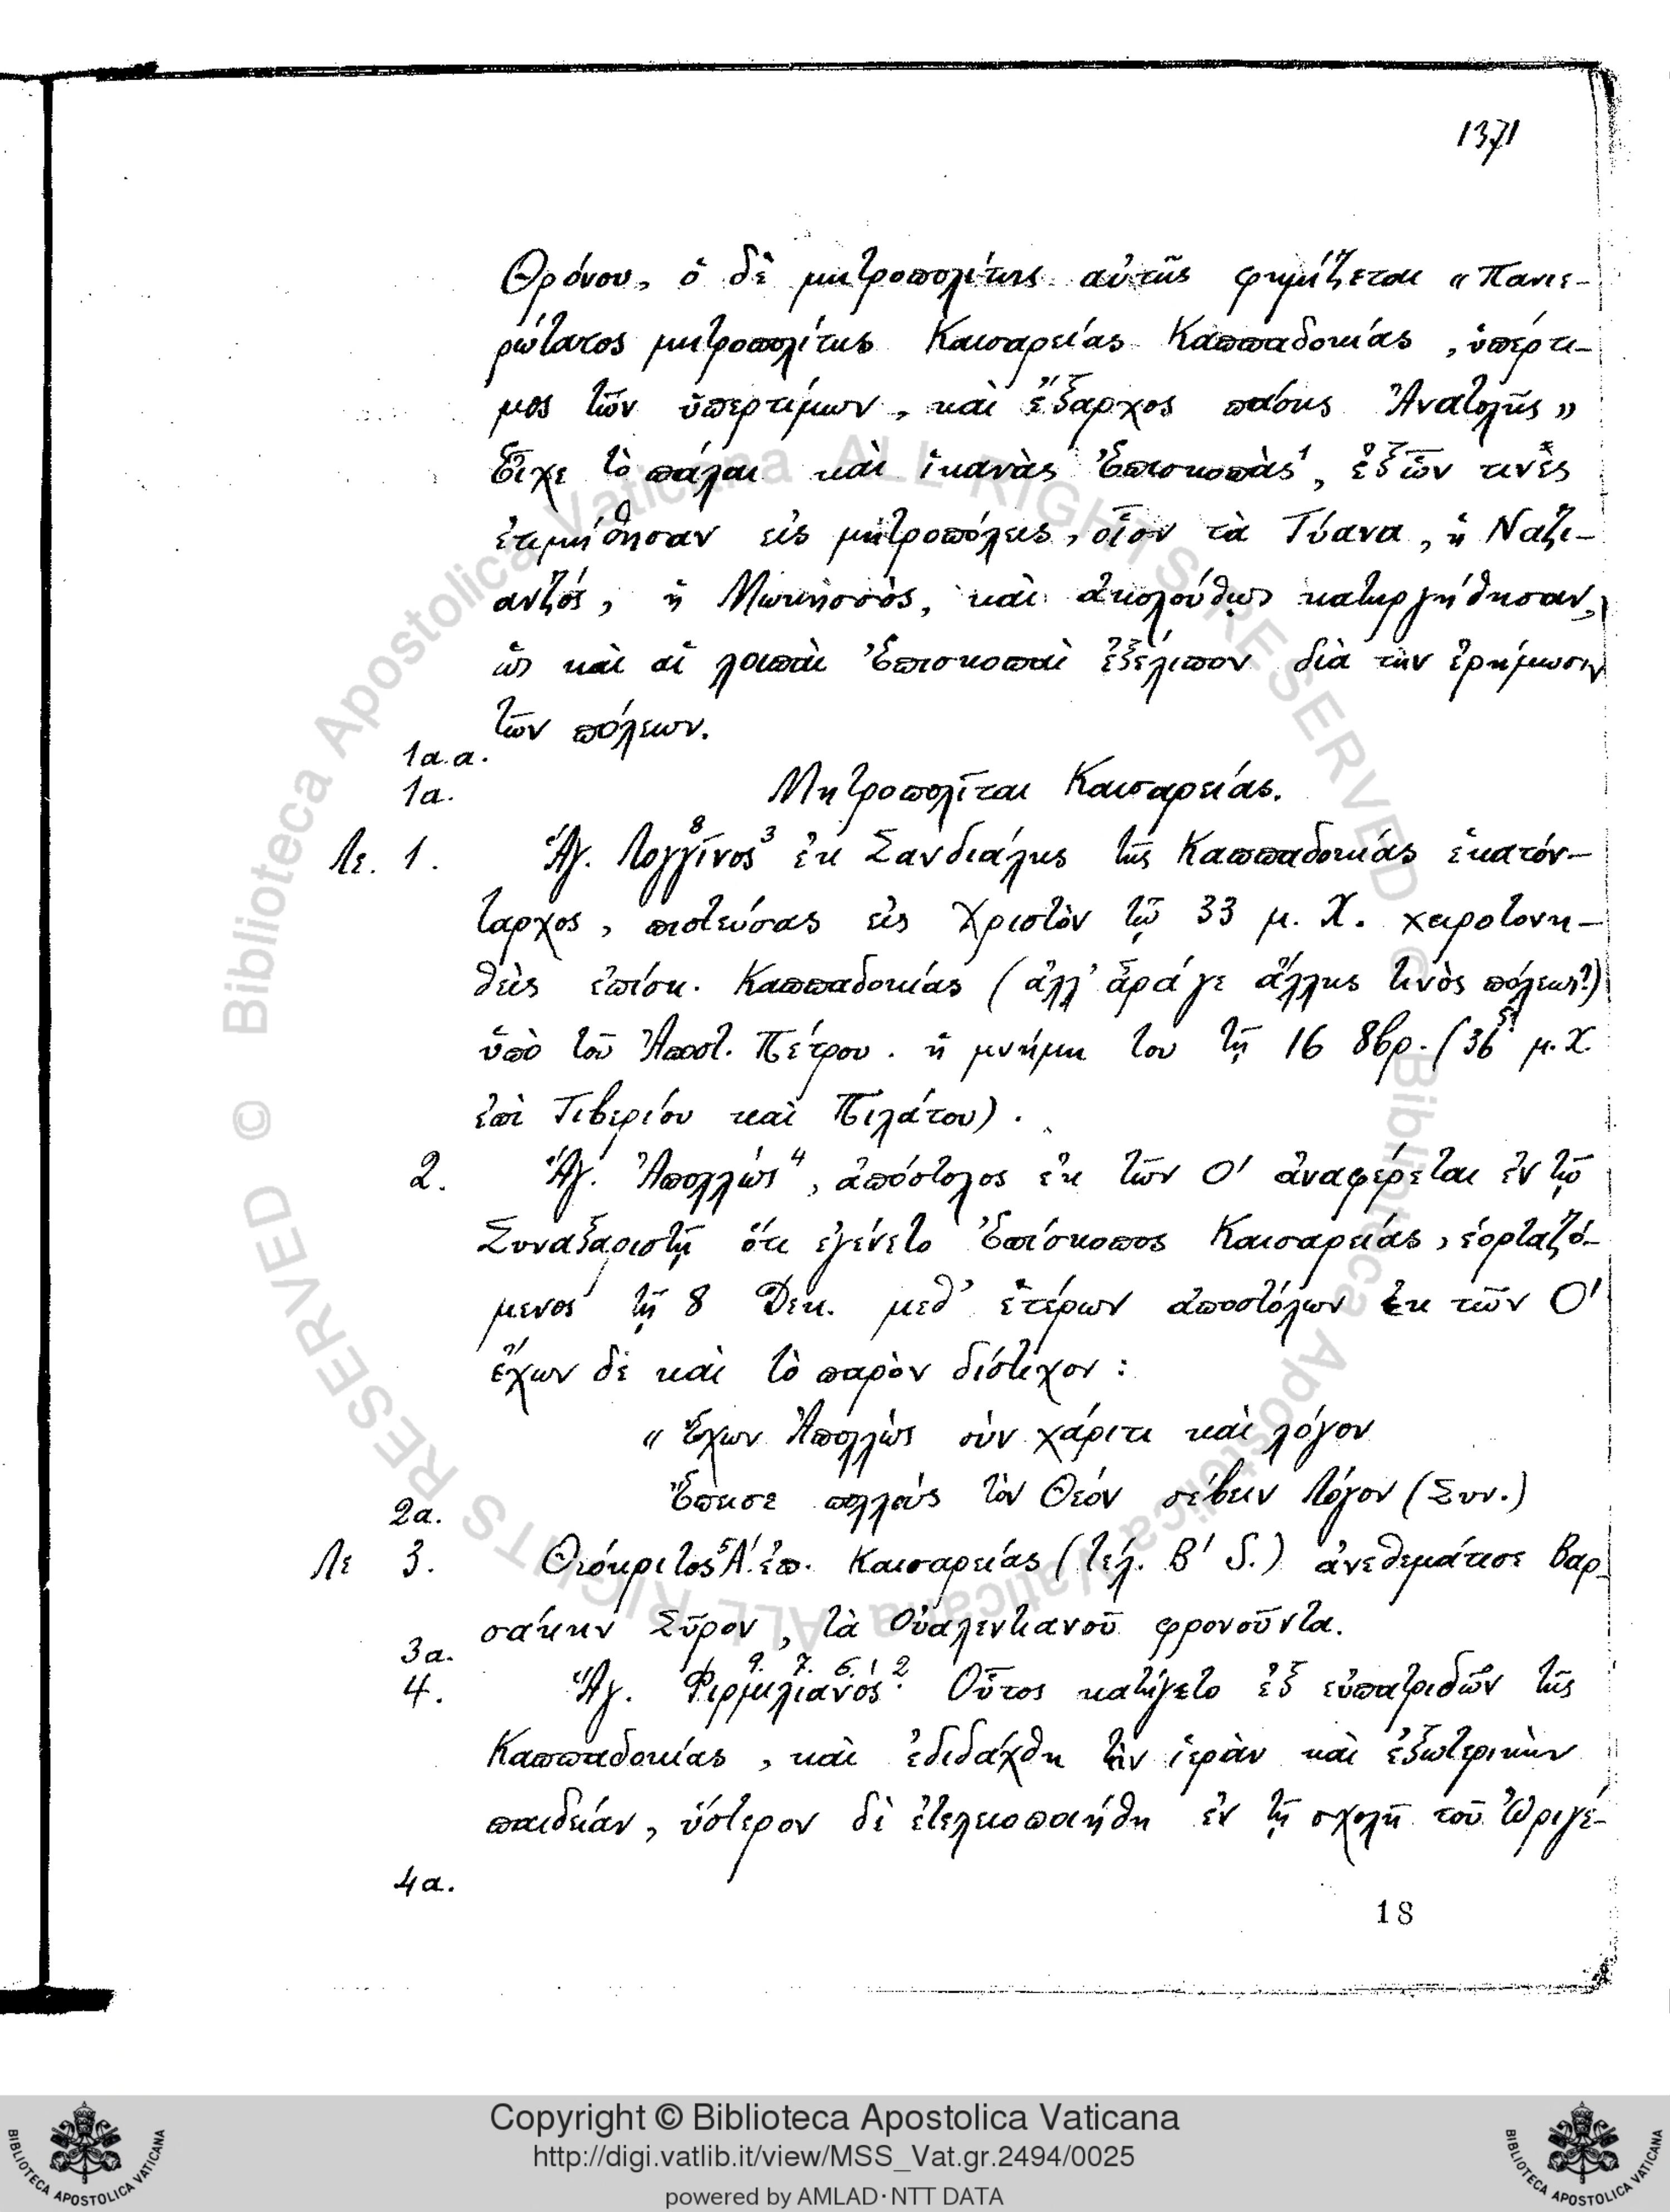 1371
Θρόνου, ὁ δὲ μητροπολίτης αὐτῆς φημίζεται «Πανιε-
ρώτατος μητροπολίτης Καισαρείας Καππαδοκίας, ὑπέρτι-
μος τῶν ὑπερτίμων, καὶ ἔξαρχος πάσης Ἀνατολῆς»
Εἶχε τὸ πάλαι καὶ ἱκανὰς Ἐπισκοπὰς, ἐξ ὧν τινὲς
ἐτιμήθησαν εἰς μητροπόλεις, οἷον τὰ Τύανα, ἡ Ναζι-
ανζός, ἡ Μωκησσὸς, καὶ ἀκολούθως κατηργήθησαν,
ὡς καὶ αἱ λοιπαὶ Ἐπισκοπαὶ ἐξέλιπον διὰ τὴν ἐρήμωσιν
τῶν πόλεων.
1α.α.
1α. Μητροπολῖται Καισαρείας.
Λε. 1. Ἅγ. Λογγῖνος 8 3 ἐκ Σανδιάλης τῆς Καππαδοκίας ἑκατόν-
ταρχος, πιστεύσας εἰς Χριστὸν τῷ 33 μ. Χ. χειροτονη-
θεὶς ἐπίσκ. Καππαδοκίας (ἀλλ' ἆρά γε ἄλλης τινὸς πόλεως?)
ὑπὸ τοῦ Ἀποστ. Πέτρου. ἡ μνήμη του τῇ 16 8βρ. (36 μ.Χ.
ἐπὶ Τιβερίου καὶ Πιλάτου).
2. Ἅγ. Ἀπολλὼς 4, ἀπόστολος ἐκ τῶν Ο' ἀναφέρεται ἐν τῷ
Συναξαριστῇ ὅτι ἐγένετο Ἐπίσκοπος Καισαρείας, ἑορταζό-
μενος τῇ 8 Δεκ. μεθ' ἑτέρων ἀποστόλων ἐκ τῶν Ο'
ἔχων δὲ καὶ τὸ παρὸν δίστιχον:
« Ἔχων Ἀπολλὼς σὺν χάριτι καὶ λόγον
Ἔπεισε πολλοὺς τὸν Θεόν σέβειν Λόγον (Συν.)
2α.
Λε 3. Θεόκριτος 5 Α' ἐπ. Καισαρείας (τέλ. Β' S.) ἀνεθεμάτισε Βαρ-
σάκην Σῦρον, τὰ Οὐαλεντιανοῦ φρονοῦντα.
3α.
4. Ἅγ. Φιρμιλιανός 9. 7. 6. 1 2. Οὗτος κατήγετο ἐξ εὐπατριδῶν τῆς
Καππαδοκίας, καὶ ἐδιδάχθη τὴν ἱερὰν καὶ ἐξωτερικὴν
παιδείαν, ὕστερον δὲ ἐτελειοποιήθη ἐν τῇ σχολῇ τοῦ Ὠριγέ-
4α.
18
© Biblioteca Apostolica Vaticana ALL RIGHTS RESERVED © Biblioteca Apostolica Vaticana ALL RIGHTS RESERVED
Copyright © Biblioteca Apostolica Vaticana
http://digi.vatlib.it/view/MSS_Vat.gr.2494/0025
powered by AMLAD·NTT DATA
BIBLIOTECA APOSTOLICA VATICANA
BIBLIOTECA APOSTOLICA VATICANA